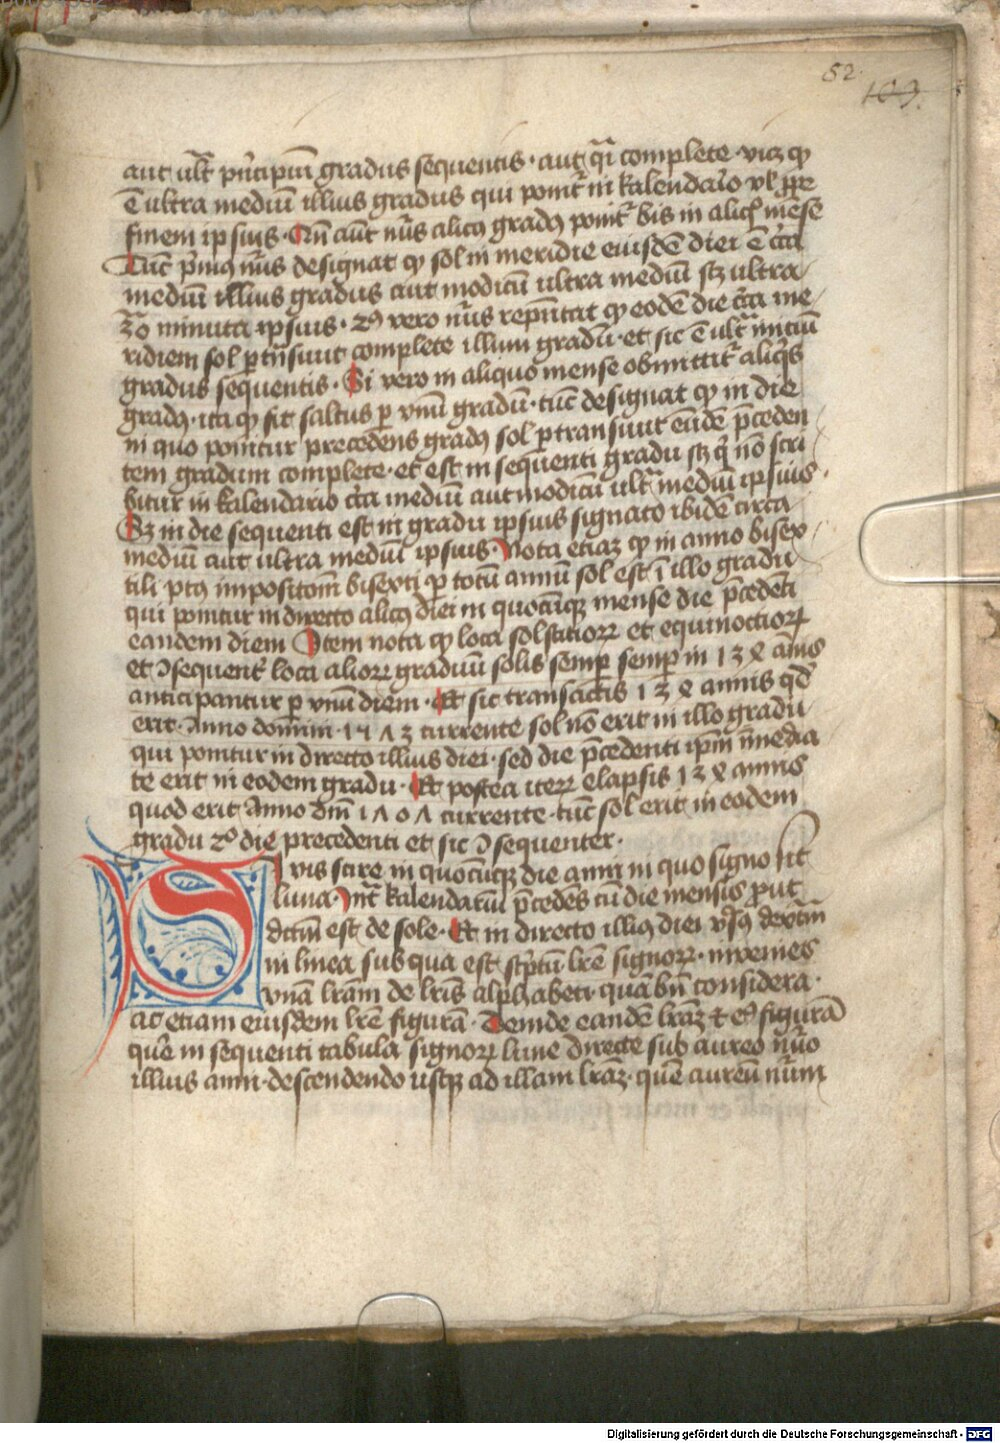 52
109.
aut ult̄ pn̄cipiū gradus sequentis · aut qn̄ complete · vicz ꝙ
ē ultra mediū illius gradus qui ponit̄ in kalendario vl̓ ꝓpe
finem ipsius · Cū aūt nūs alicꝰ gradꝰ ponit̄ bis in aliq̊ mēse
Tūc p̄mꝰ nūs designat ꝙ sol in meridie eiusdē diei ē circa
mediū illius gradus aut modicū ultra mediū scz ultra
30 minuta ipsius · 2ꝰ vero nūs rep̄ntat ꝙ eodē die circa me
ridiem sol ꝑtn̄siuit complete illum gradū · et sic ē ult̄ initiū
gradus sequentis · Si vero in aliquo mense obmittit̄ aliqͥs
gradꝰ · ita ꝙ fit saltus ꝑ vnū gradū · tūc designat ꝙ in die
in quo ponitur precedens gradꝰ sol ꝑtransiuit eūdē p̄ceden
tem gradum complete · et est in sequenti gradu scz qͥ nō scri
bitur in kalendario circa mediū aut modicū ult̄ mediū ipsius ·
Sz in die sequenti est in gradu ipsius signato ibidē circa
mediū aut ultra mediū ipsius · Nota etiaz ꝙ in anno bisex
tili ptꝰ impositom̄ bisexti ꝑ totū annū sol est ī illo gradu
qui ponitur in directo alicꝰ diei in quocūqꝫ mense die p̄cedēti
eandem diem Item nota ꝙ loca solsticioꝝ et equinoctioꝝ
et ꝯsequent̄ loca alioꝝ graduū solis semꝑ semꝑ in 136 ānis
anticipantur ꝑ vnū diem · Et sic transactis 136 annis qd̓
erit · Anno domini 1573 currente sol nō erit in illo gradu
qui ponitur in directo illius diei · sed die p̄cedenti ipm̄ īmedia
te erit in eodem gradu · Et postea iteꝝ elapsis 136 annis
quod erit Anno dn̄i 1707 currente · tūc sol erit in eodem
gradu 2ꝰ die precedenti et sic ꝯsequenter ·
Si vis scire in quocūqꝫ die anni in quo signo sit
luna · Int̄ kalendariū p̄cedēs cū die mensis ꝓut
dictū est de sole · Et in directo illiꝰ diei vsꝰ dextrā
in linea sub qua est scptū lrē signoꝝ · invenies
vnā lrām de lrīs alphabeti · quā bn̄ considera ·
ac etiam eiusdem lrē figurā · Deinde eandē lrāz et eiꝰ figurā
quere in sequenti tabula signoꝝ lune directe sub aureo nūo
illius anni · descendendo usqꝫ ad illam lrāz · quē aureū nūm
Digitalisierung gefördert durch die Deutsche Forschungsgemeinschaft - DFG